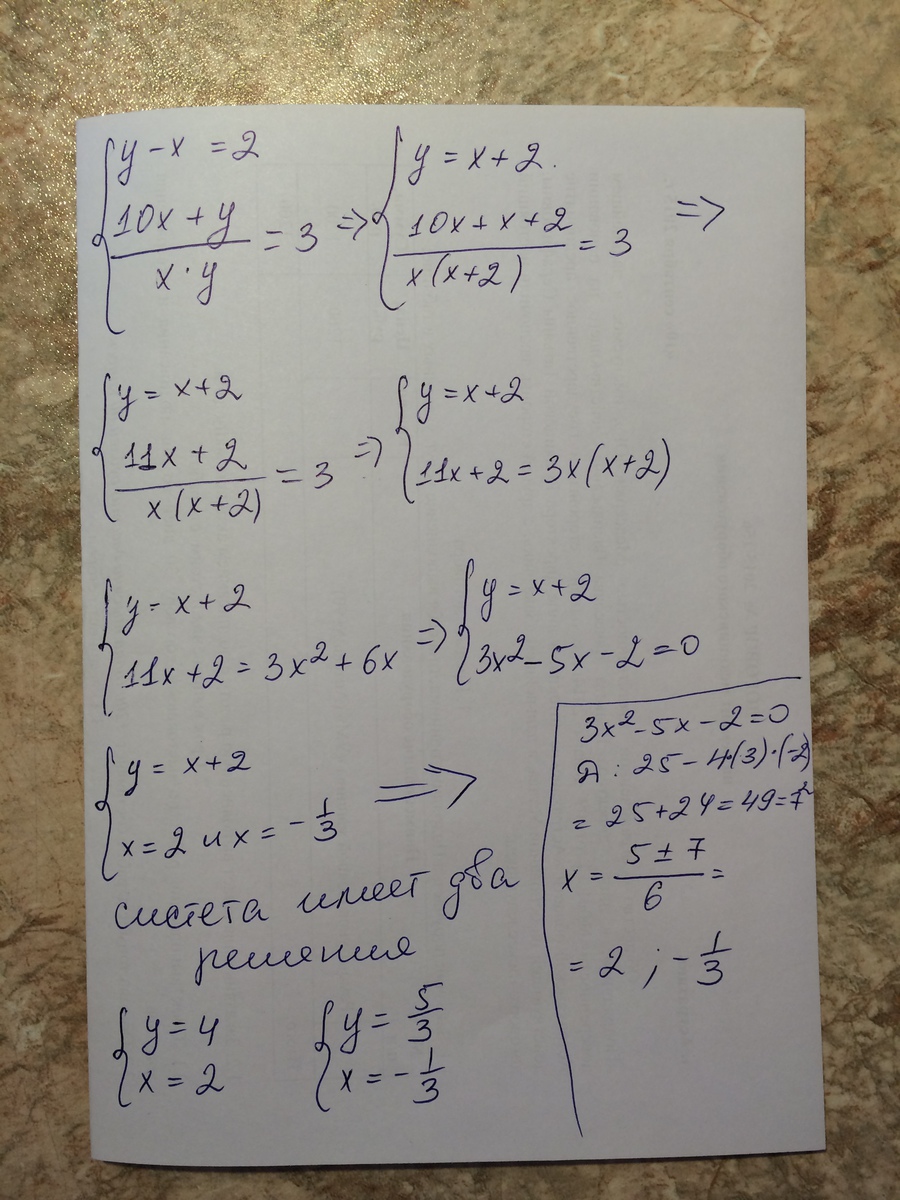 { y - x = 2
(10x + y)/(x · y) = 3 => { y = x + 2.
(10x + x + 2)/(x(x+2)) = 3 =>
{ y = x+2
(11x + 2)/(x(x+2)) = 3 => { y = x+2
11x + 2 = 3x(x+2)
{ y = x + 2
11x + 2 = 3x² + 6x => { y = x + 2
3x² - 5x - 2 = 0
{ y = x + 2
x = 2 и x = -1/3 =>
система имеет два
решения
{ y = 4
x = 2
{ y = 5/3
x = -1/3
3x² - 5x - 2 = 0
Д: 25 - 4·(3)·(-2)
= 25 + 24 = 49 = 7²
x = (5 ± 7)/6 =
= 2 ; -1/3